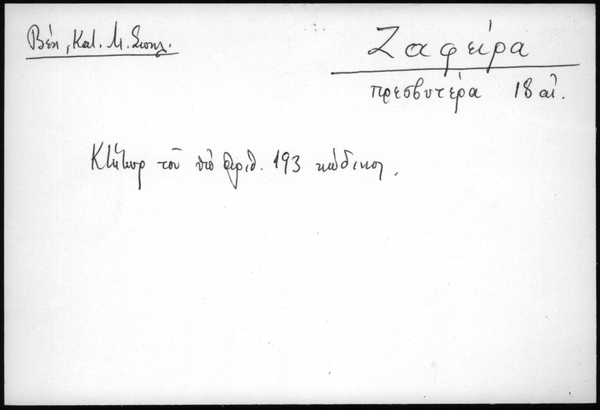 Βέη, Κατ. Μ. Σπηλ.
Ζαφείρα
πρεσβυτέρα 18 αἰ.
Κτήτωρ τοῦ ὑπ' ἀριθ. 193 κώδικος.